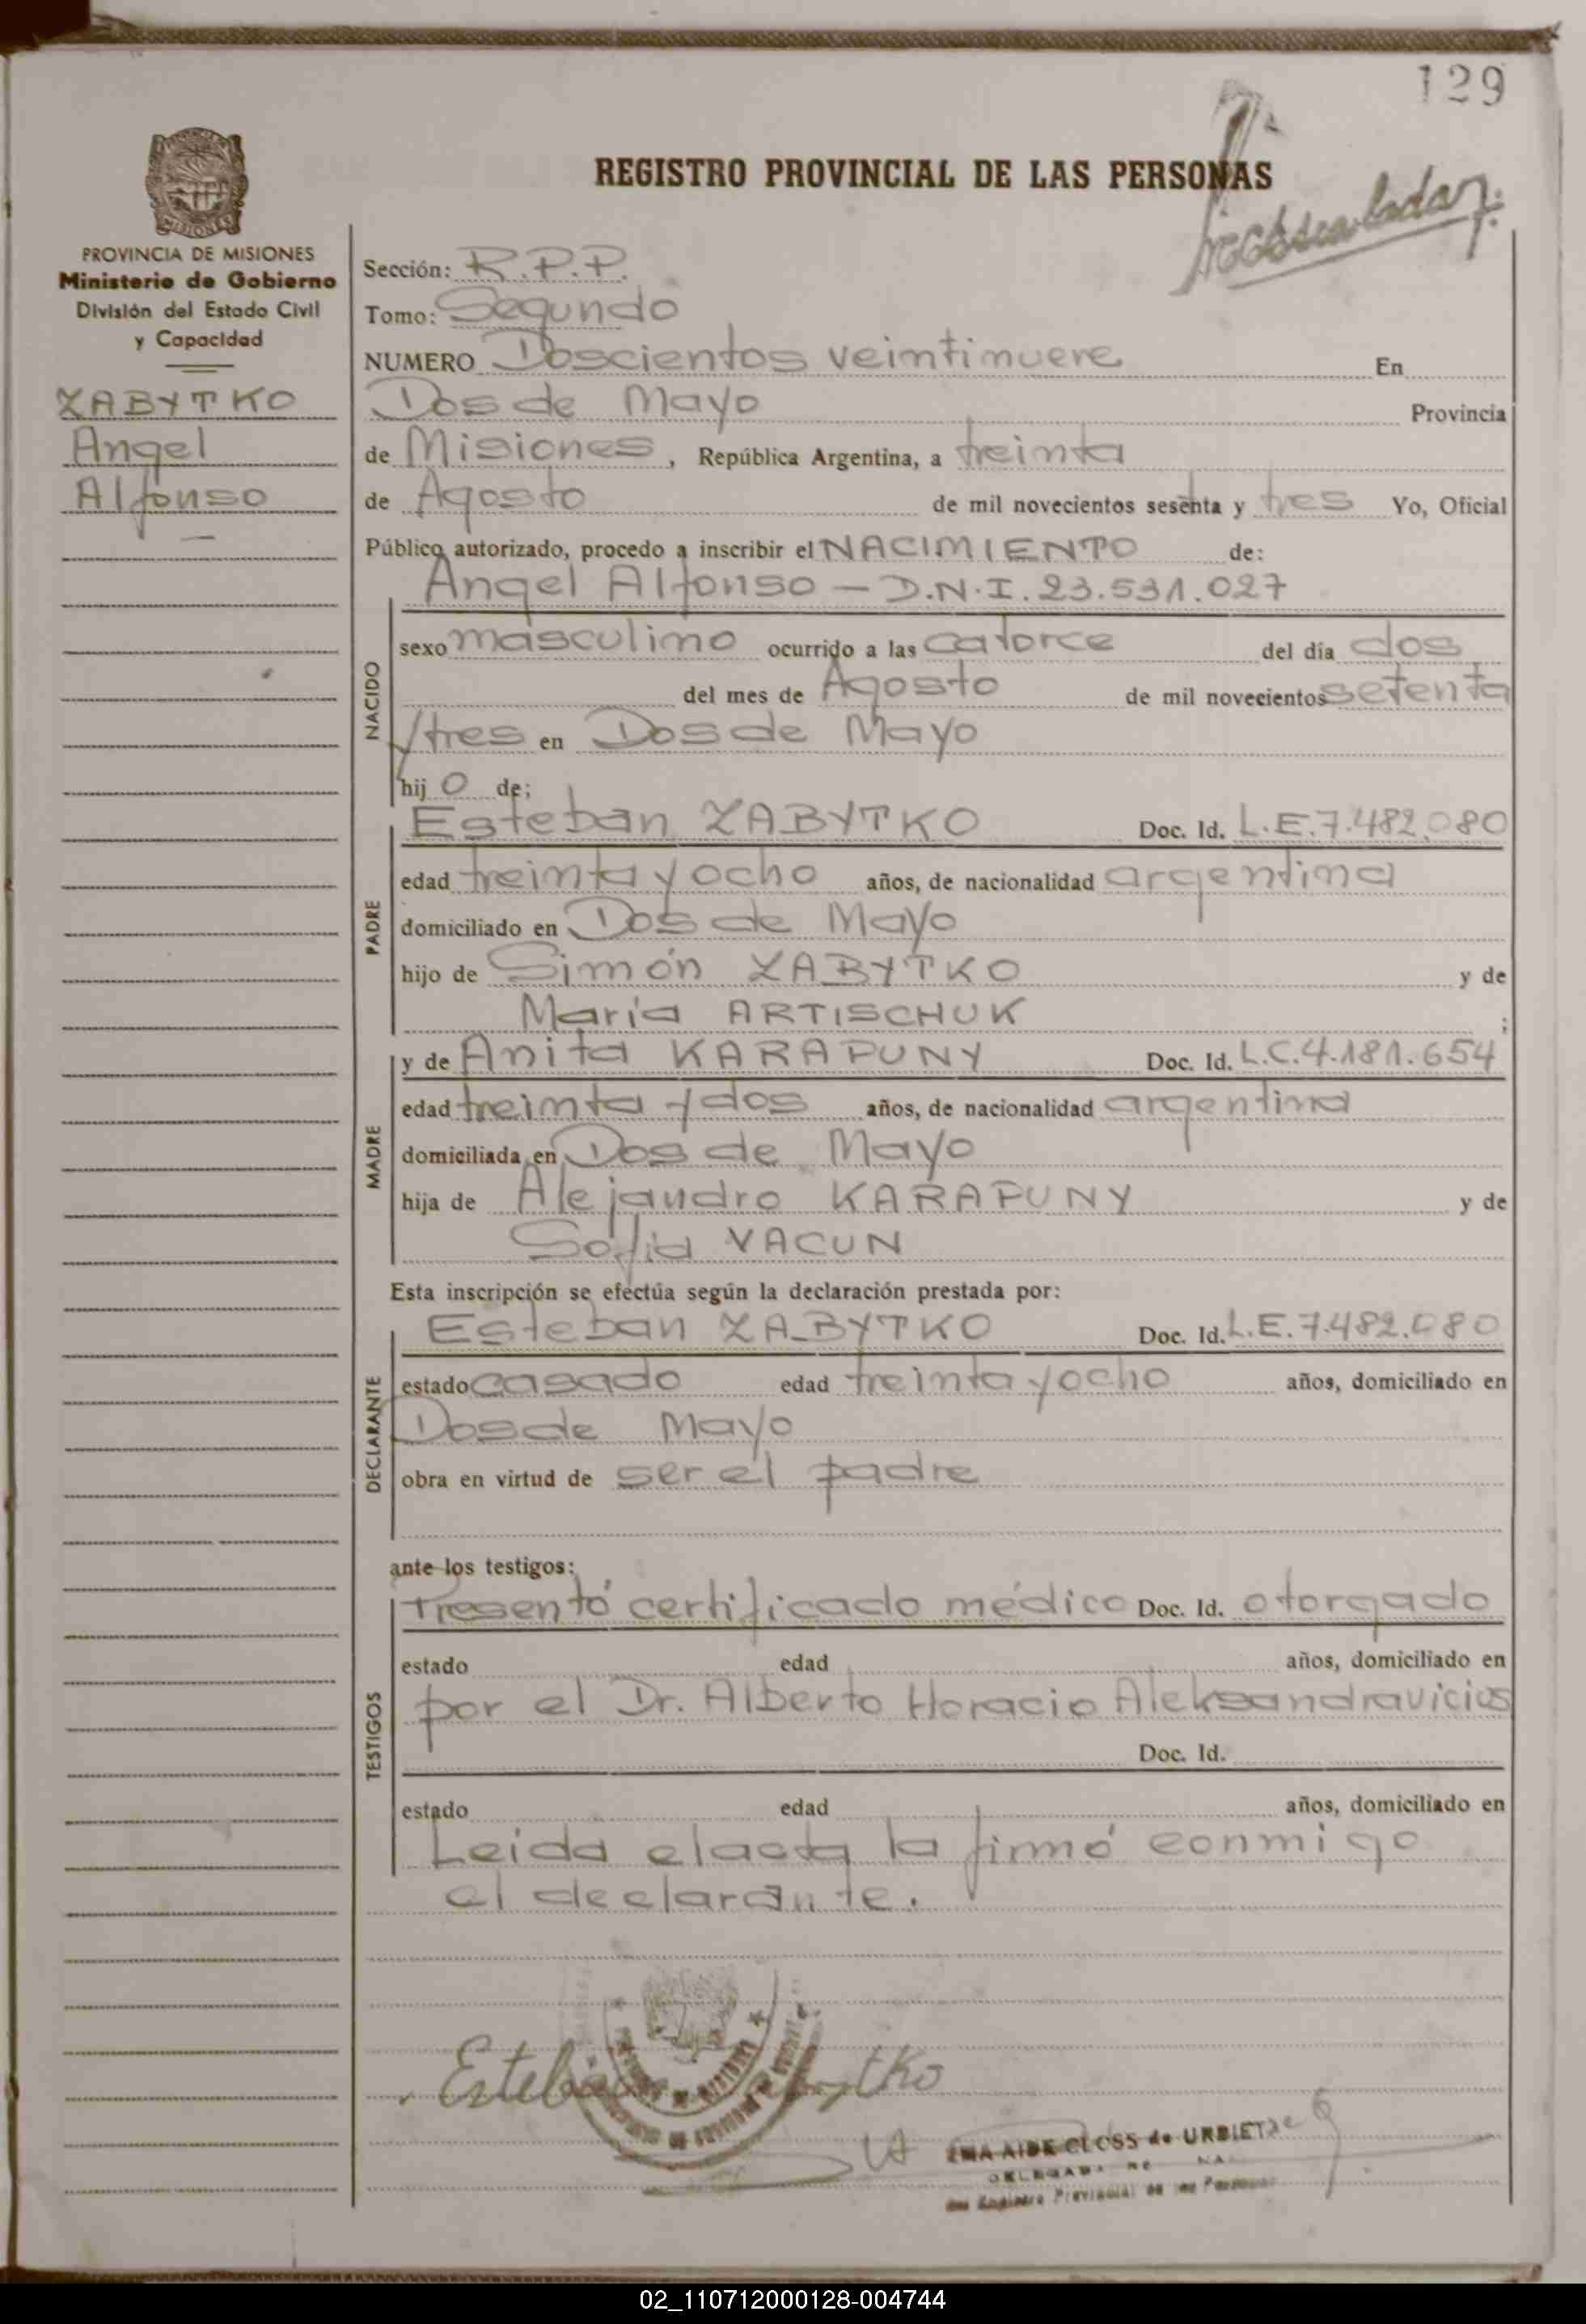 129
REGISTRO PROVINCIAL DE LAS PERSONAS
PROVINCIA DE MISIONES
Ministerio de Gobierno
División del Estado Civil
y Capacidad
ZABYTKO
Angel
Alfonso
Sección: R.P.P.
Tomo: Segundo
NUMERO Doscientos veintinueve En
Dos de Mayo Provincia
de Misiones, República Argentina, a treinta
de Agosto de mil novecientos sesenta y tres Yo, Oficial
Público autorizado, procedo a inscribir el NACIMIENTO de:
Angel Alfonso — D.N.I. 23.531.027
NACIDO
sexo masculino ocurrido a las catorce del día dos
del mes de Agosto de mil novecientos setenta
y tres en Dos de Mayo
hijo de;
PADRE
Esteban ZABYTKO Doc. Id. L.E.7.482.080
edad treinta y ocho años, de nacionalidad argentina
domiciliado en Dos de Mayo
hijo de Simón ZABYTKO y de
María ARTISCHUK ;
MADRE
y de Anita KARAPUNY Doc. Id. L.C.4.181.654
edad treinta y dos años, de nacionalidad argentina
domiciliada en Dos de Mayo
hija de Alejandro KARAPUNY y de
Sofia VACUN
Esta inscripción se efectúa según la declaración prestada por:
DECLARANTE
Esteban ZABYTKO Doc. Id. L.E.7.482.080
estado casado edad treinta y ocho años, domiciliado en
Dos de Mayo
obra en virtud de ser el padre
ante los testigos:
TESTIGOS
Presentó certificado médico Doc. Id. otorgado
estado edad años, domiciliado en
por el Dr. Alberto Horacio Aleksandravicius
Doc. Id.
estado edad años, domiciliado en
Leida el acta la firmó conmigo
el declarante.
Esteban
AIDE CLOSS de URBIETA
02_110712000128-004744